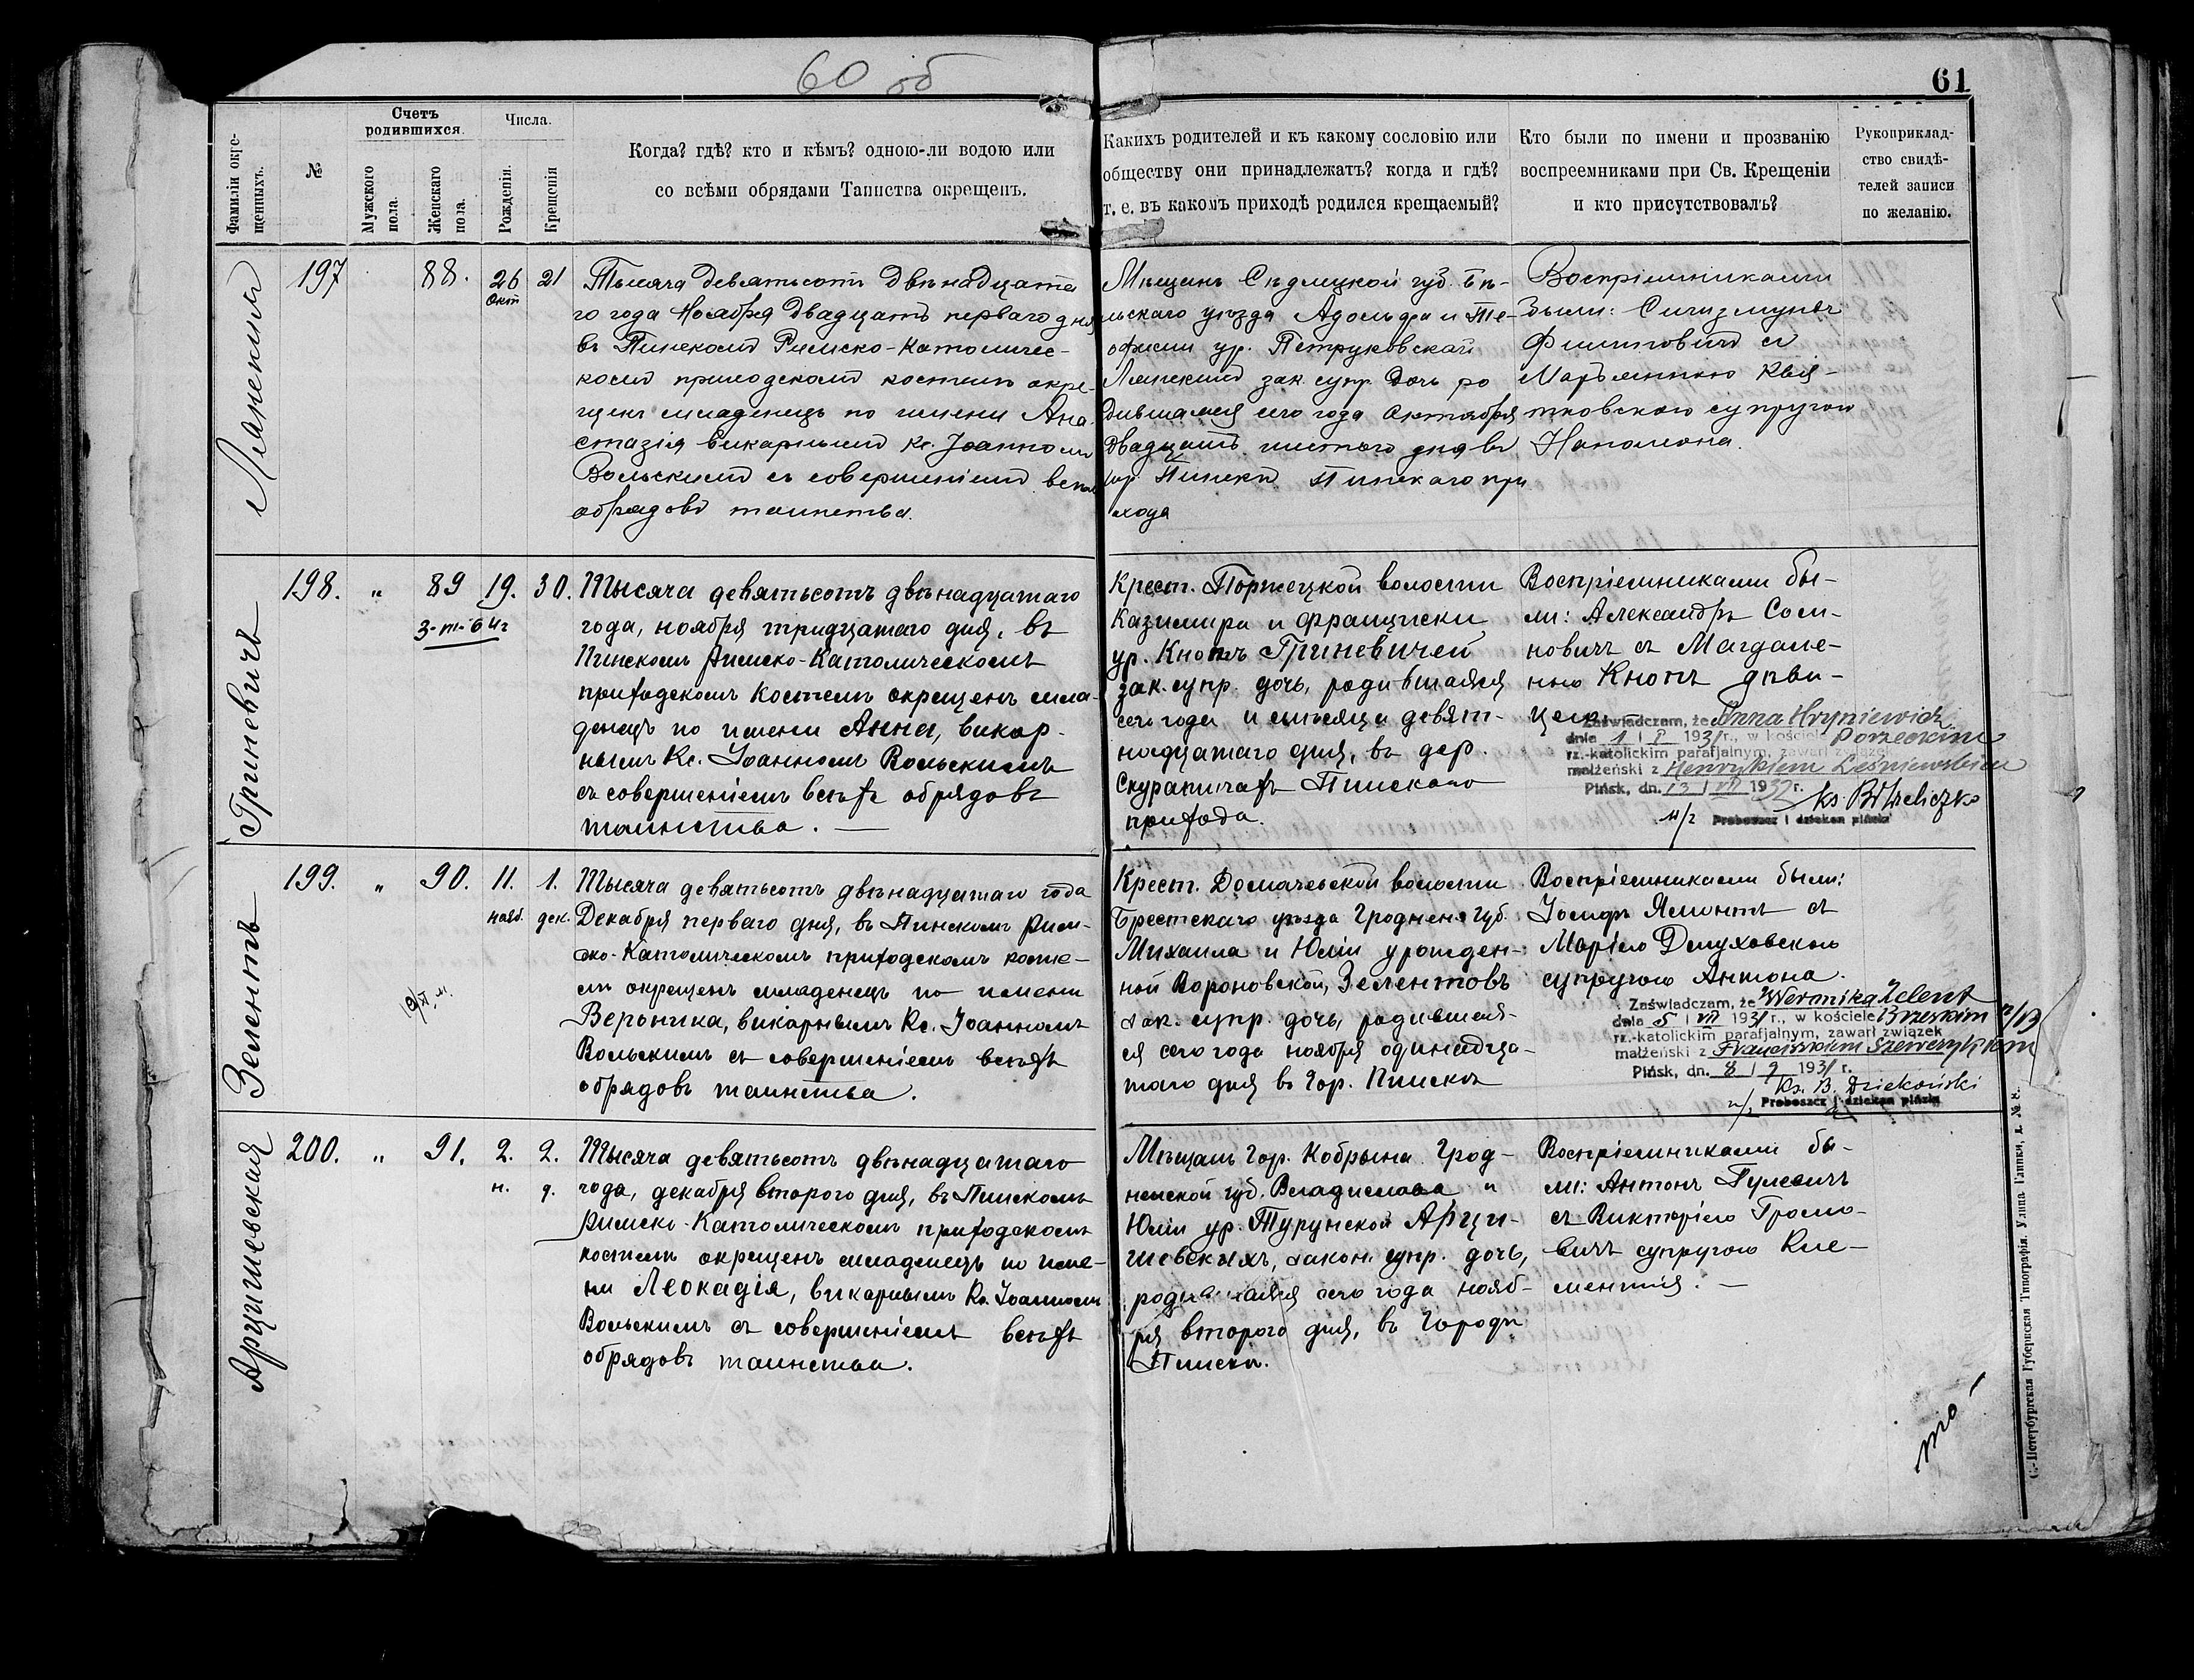 60 об
61
Фамиліи окре-
щенныхъ.
№
Счетъ
родившихся.
Мужского
пола.
Женскаго
пола.
Числа.
Рожденія.
Крещенія
Когда? гдѣ? кто и кѣмъ? одною-ли водою или
со всѣми обрядами Таинства окрещенъ.
Какихъ родителей и къ какому сословію или
обществу они принадлежатъ? когда и гдѣ?
т. е. въ какомъ приходѣ родился крещаемый?
Кто были по имени и прозванію
воспреемниками при Св. Крещеніи
и кто присутствовалъ?
Рукоприклад-
ство свидѣ-
телей записи
по желанію.
197
88.
26
Окт
21
Тысяча девятьсотъ двѣнадцата
го года Ноября двадцать перваго дня
въ Пинскомъ Римско-Католичес-
комъ приходскомъ костелѣ окре-
щенъ младенецъ по имени Ана-
стазія викарнымъ Кс. Іоанномъ
Вольскимъ съ совершеніемъ всѣхъ
обрядовъ таинства.
Мѣщанъ Сѣдлецкой губ. Бѣ-
льскаго уѣзда Адольфа и Те-
офиліи ур. Петруковской
зак. супр. дочь ро
дившаяся сего года Октября
двадцать шестого дня въ
гор. Пинскѣ Пинскаго при
хода
Воспріемниками
были: Сигизмундъ
Филиповичъ съ
Марьянною Квя-
тковскою супругою
Наполеона.
Гриневичъ
198.
"
89
19.
30.
Тысяча девятьсотъ двѣнадцатаго
года, ноября тридцатаго дня, въ
Пинскомъ Римско-Католическомъ
приходскомъ костелѣ окрещенъ мла-
денецъ по имени Анна, викар-
нымъ Кс. Іоанномъ Вольскимъ
съ совершеніемъ всѣхъ обрядовъ
таинства. —
Крест. Порѣцкой волости
Казимира и Францишки
ур. Кнотъ Гриневичей
зак. супр. дочь, родившаяся
сего года и мѣсяца девят-
надцатаго дня, въ дер.
Скуратичахъ Пинскаго
прихода.
Воспріемниками бы-
ли: Александръ Соли-
новичъ съ Магдале-
ною Кнотъ дѣви-
цею.
Zaświadczam, że Anna Hryniewicz
dnia 1 I 1931 r., w kościele Porzeckim
rz.-katolickim parafjalnym, zawarł związek
małżeński z Henrykiem Leśniewskim
Pińsk, dn. 13 VII 193 r.
Proboszcz i dziekan piński
Зелентъ
199.
"
90.
11.
нояб.
1.
дек.
Тысяча девятьсотъ двѣнадцатаго года
Декабря перваго дня, въ Пинскомъ Рим-
ско-Католическомъ приходскомъ косте-
лѣ окрещенъ младенецъ по имени
Вероника, викарнымъ Кс. Іоанномъ
Вольскимъ съ совершеніемъ всѣхъ
обрядовъ таинства.
Крест. Домачевской волости
Брестскаго уѣзда Гродненс. губ.
Михаила и Юліи урожден-
ной Вороновской, Зелентовъ
зак. супр. дочь, родившая-
ся сего года ноября одиннадца-
таго дня въ гор. Пинскѣ
Воспріемниками были:
Іосифъ Ясмонтъ съ
Маріею Длуховскою
супругою Антона.
Zaświadczam, że Weronika Zelent
dnia 5 VII 1931 r., w kościele Brzeskim
rz.-katolickim parafjalnym, zawarł związek
małżeński z Franciszkiem Szewczykiem
Pińsk, dn. 8 I 9 1931 r.
Ks. B. Dziekoński
Proboszcz i dziekan piński
Арцишевская
200.
"
91.
2.
н.
2.
д.
Тысяча девятьсотъ двѣнадцатаго
года, декабря второго дня, въ Пинскомъ
Римско-Католическомъ приходскомъ
костелѣ окрещенъ младенецъ по име-
ни Леокадія, викарнымъ Кс. Іоанномъ
Вольскимъ съ совершеніемъ всѣхъ
обрядовъ таинства.
Мѣщанъ гор. Кобрына Грод-
ненской губ. Владислава и
Юліи ур. Турунской Арци-
шевскихъ, закон. супр. дочь,
родившаяся сего года нояб-
ря второго дня, въ городѣ
Пинскѣ.
Воспріемниками бы-
ли: Антонъ Гулевичъ
съ Викторіею Громо-
вичъ супругою Кле-
ментія. —
С.-Петербургская Губернская Типографія. Улица Глинки, д. № 8.